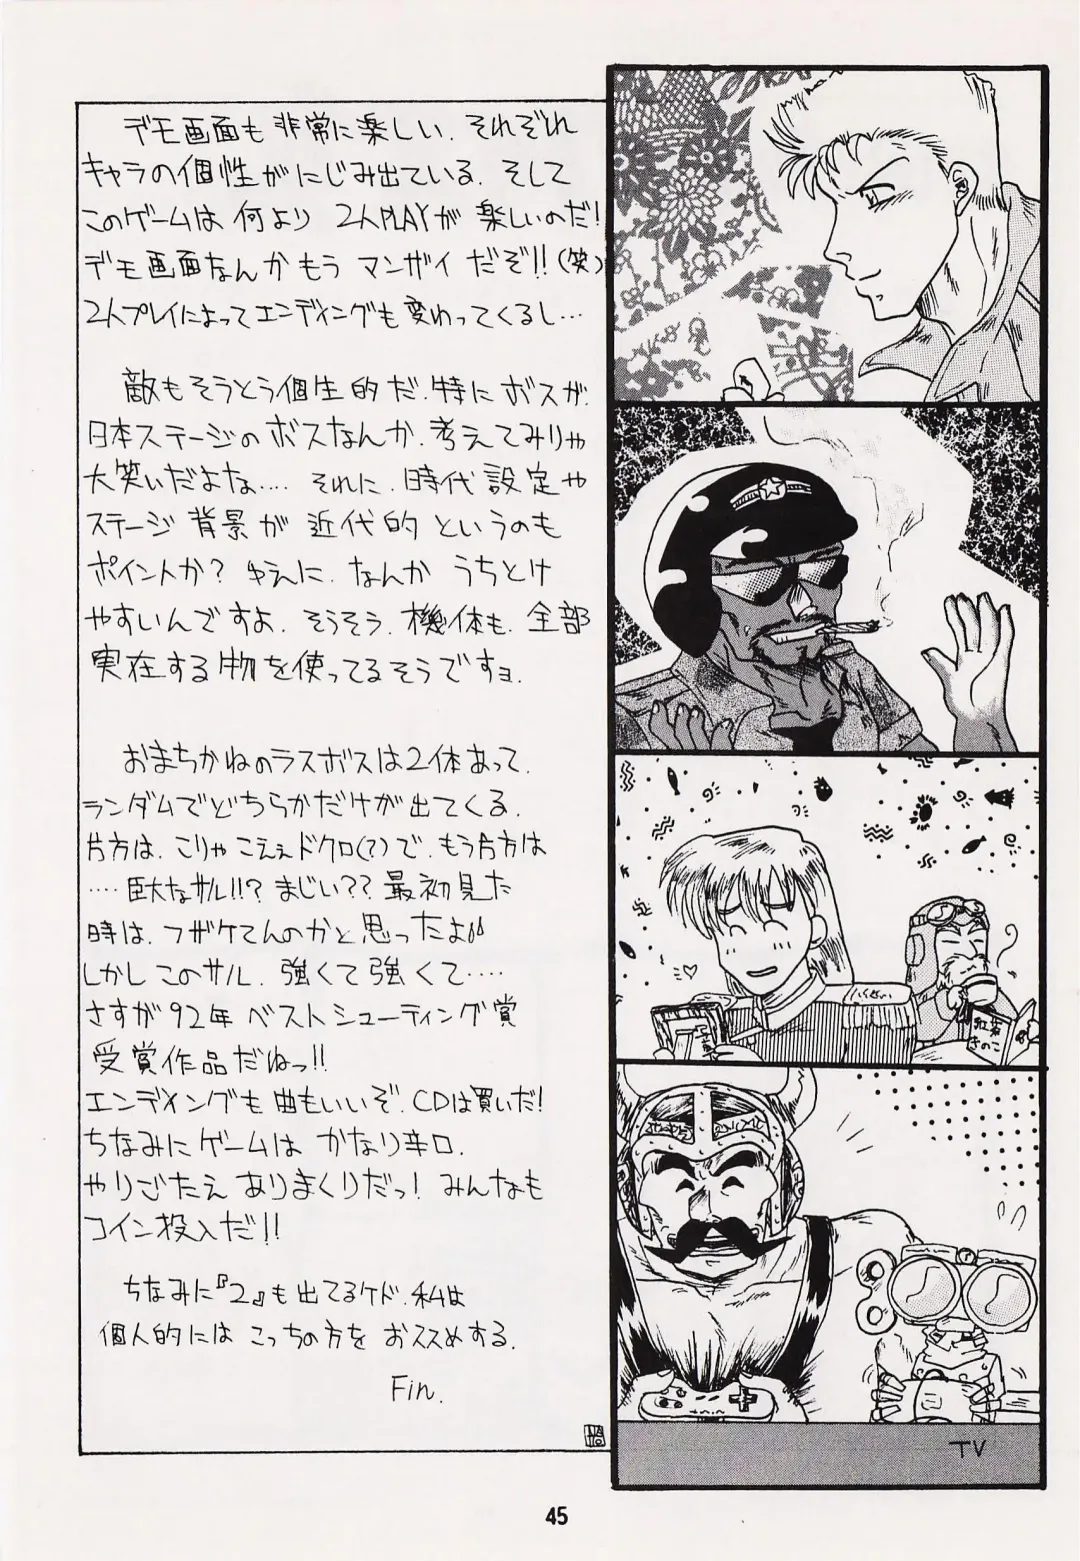 デモ画面も非常に楽しい.それぞれ
キャラの個性がにじみ出ている.そして
このゲームは何より2人PLAYが楽しいのだ!
デモ画面なんかもうマンザイだぞ!!(笑)
2人プレイによってエンディングも変わってくるし…
敵もそうとう個生的だ.特にボスが.
日本ステージのボスなんか.考えてみりゃ
大笑いだよな….それに.時代設定や
ステージ背景が近代的というのも
ポイントか?ゆえに.なんかうちとけ
やすいんですよ.そうそう.機体も.全部
実在する物を使ってるそうですョ.
おまちかねのラスボスは2体あって.
ランダムでどちらかだけが出てくる.
片方は.こりゃこえぇドクロ(?)で.もう片方は
…巨大なサル!!?まじい??最初見た
時は.フザケてんのかと思ったよ
しかしこのサル.強くて強くて……
さすが92年ベストシューティング賞
受賞作品だねっ!!
エンディングも曲もいいぞ.CDは買いだ!
ちなみにゲームはかなり辛口.
やりごたえありまくりだっ!みんなも
コイン投入だ!!
ちなみに『2』も出てるケド.私は
個人的にはこっちの方をおススメする.
Fin.
紅茶
きのこ
TV
45